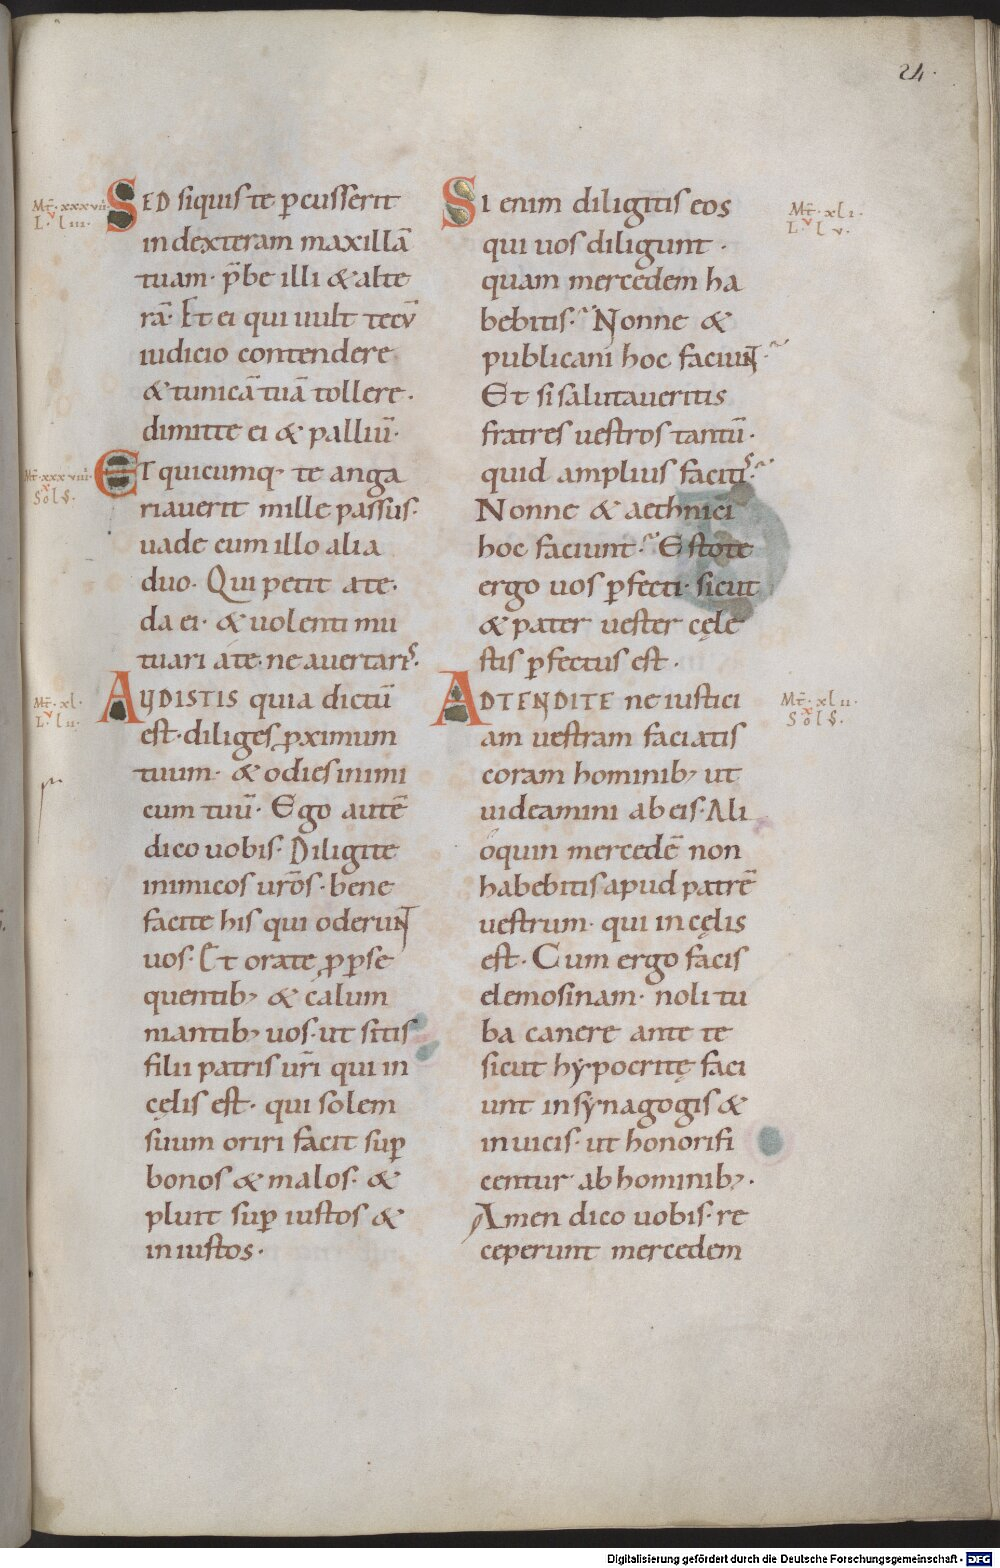 24.
Mt̄ · xxxvii ·
v
L · liii ·
SED siquis te ꝑcusserit
in dexteram maxillā
tuam · p̄be illi & alte
rā · Et ei qui uult tecū
iudicio contendere
& tunicā tuā tollere ·
dimitte ei & palliū ·
Mt̄ · xxxviii ·
x
Sols ·
ET quicumq; te anga
riauerit mille passus ·
uade cum illo alia
duo · Qui petit a te ·
da ei · & uolenti mu
tuari a te · ne auertaris ·
Mt̄ · xl ·
v
L · lii ·
AVDISTIS quia dictū
est · diliges ꝓximum
tuum · & odies inimi
cum tuū · Ego autē
dico uobis · Diligite
inimicos ur̄os · bene
facite his qui oderunt
uos · Et orate ꝓ ꝑse
quentib; & calum
niantib; uos · ut sitis
filii patris ur̄i qui in
cęlis est · qui solem
suum oriri facit suꝑ
bonos & malos · &
pluit suꝑ iustos &
iniustos ·
Mt̄ · xli ·
v
L · lv ·
SI enim diligitis eos
qui uos diligunt ·
quam mercedem ha
bebitis · Nonne &
publicani hoc faciunt ·
Et si salutaueritis
fratres uestros tantū ·
quid amplius facitis ·
Nonne & aethnici
hoc faciunt · Estote
ergo uos ꝑfecti · sicut
& pater uester cęle
stis ꝑfectus est ·
Mt̄ · xlii ·
x
Sols ·
ADTENDITE ne iustici
am uestram faciatis
coram hominib; ut
uideamini ab eis · Ali
oquin mercedē non
habebitis apud patrē
uestrum · qui in cęlis
est · Cum ergo facis
elemosinam · noli tu
ba canere ante te
sicut hypocritę faci
unt in synagogis &
in uicis · ut honorifi
centur ab hominib; ·
Amen dico uobis · re
ceperunt mercedem
Digitalisierung gefördert durch die Deutsche Forschungsgemeinschaft - DFG